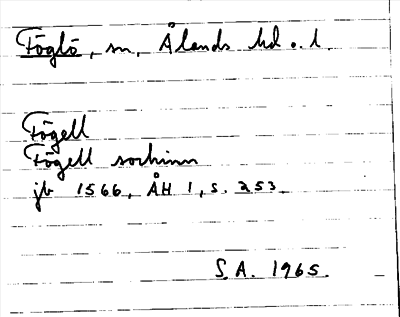 Föglö, sn, Ålands hd o. l.
Fögell
Fögell sochinn
jb 1566, ÅH 1, s. 253.
S.A. 1965.